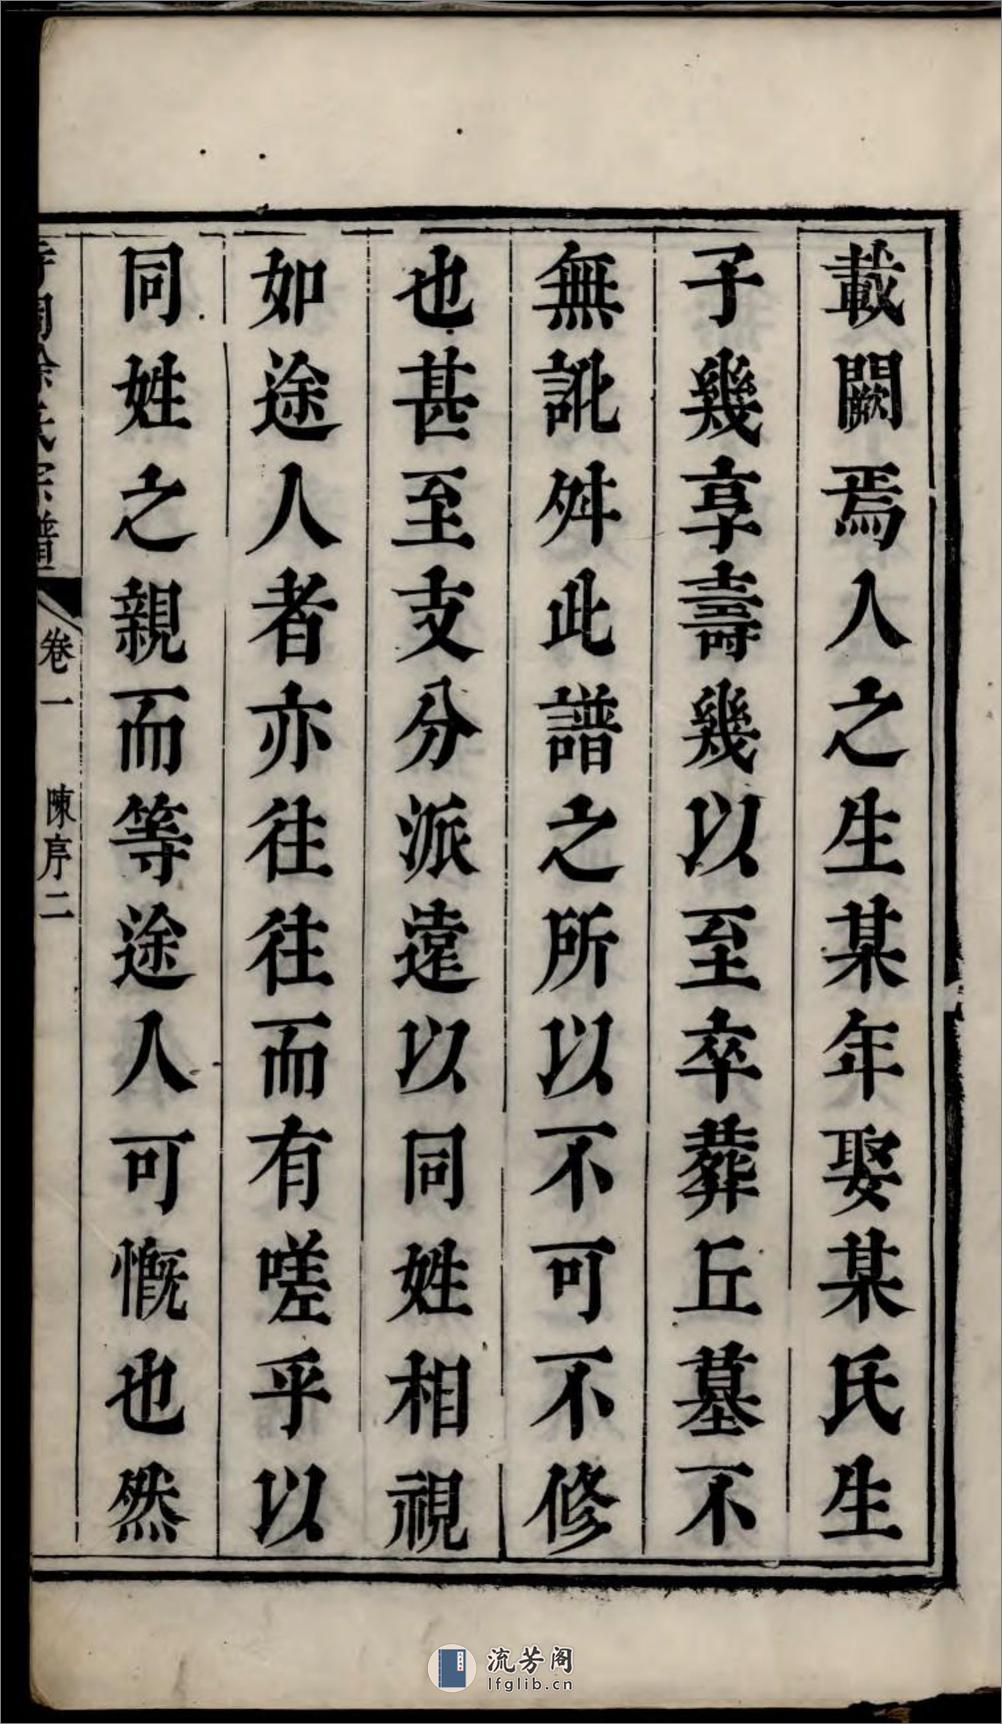 載闕焉人之生某年娶某氏生
子幾享壽幾以至卒葬丘墓不
無訛舛此譜之所以不可不修
也甚至支分派遠以同姓相視
如途人者亦往往而有嗟乎以
同姓之親而等途人可慨也然
徐氏宗譜
卷一
陳序二
流芳阁
lfglib.cn